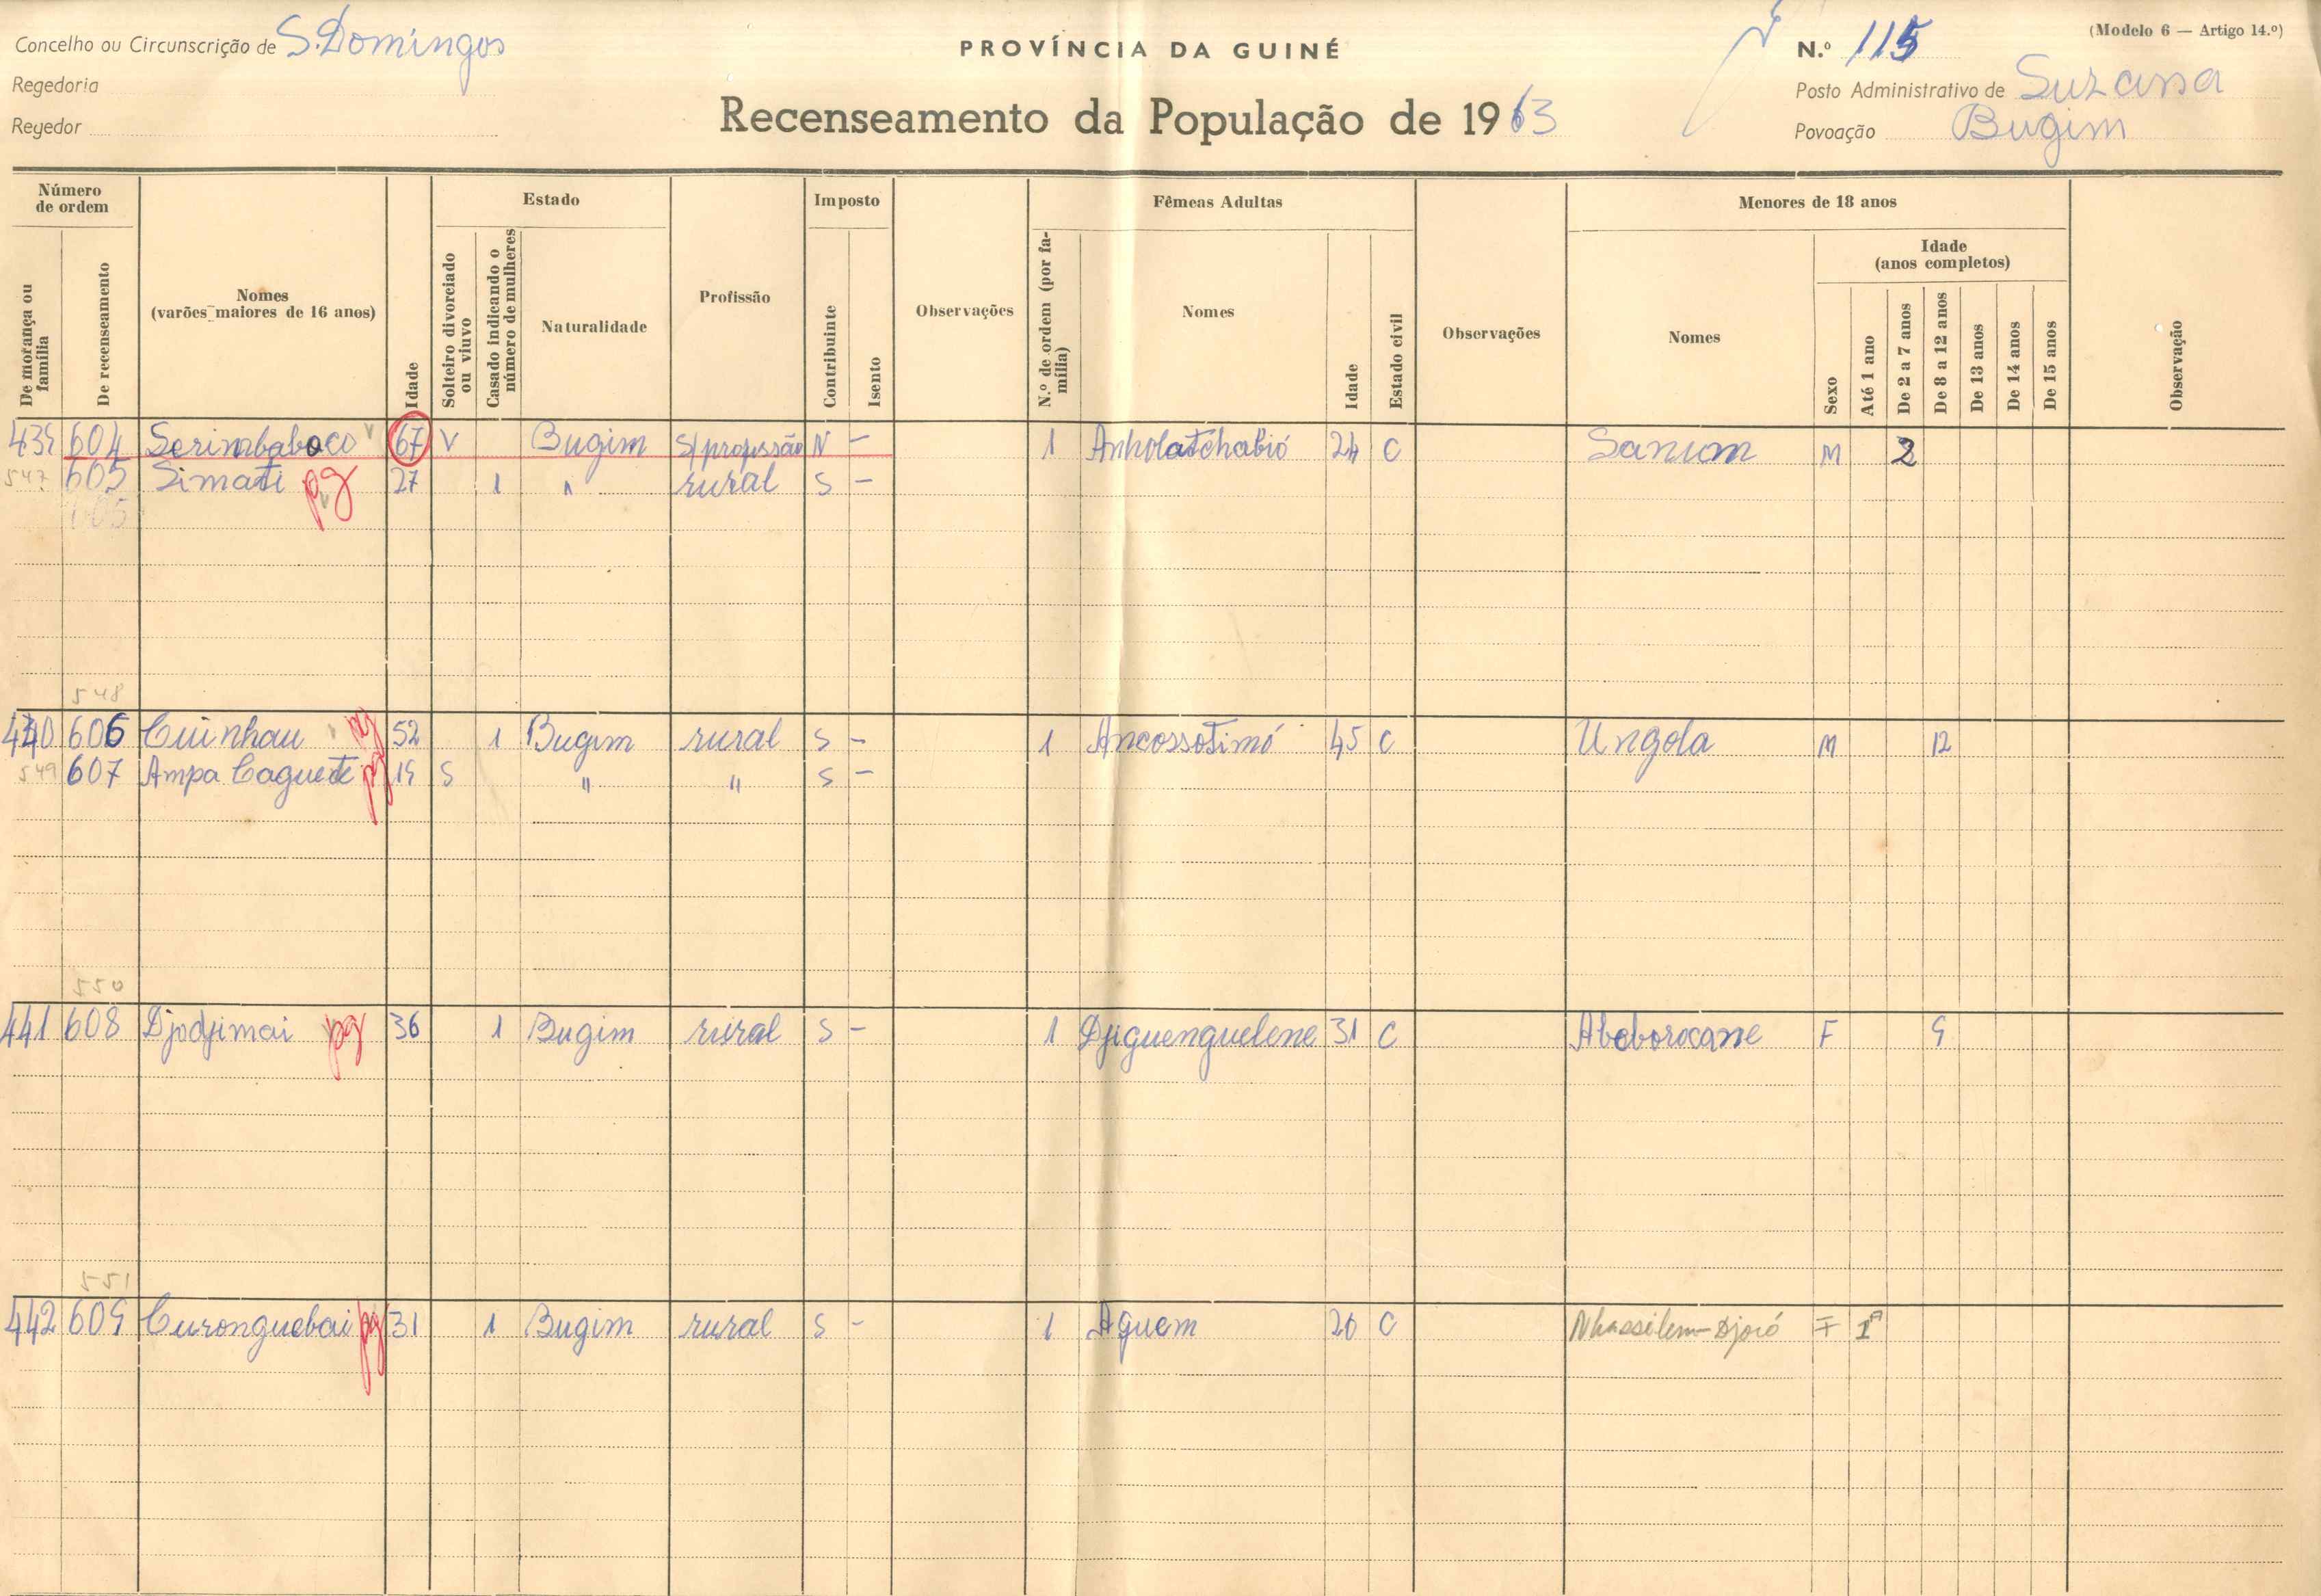 Concelho ou Circunscrição de S. Domingos
PROVÍNCIA DA GUINÉ
N.º 115
(Modelo 6 — Artigo 14.º)
Regedoria
Posto Administrativo de Suzana
Regedor
Recenseamento da População de 1963
Povoação Bugim
Número de ordem
Estado
Imposto
Fêmeas Adultas
Menores de 18 anos
De morança ou família
De recenseamento
Nomes (varões maiores de 16 anos)
Idade
Solteiro divorciado ou viuvo
Casado indicando o número de mulheres
Naturalidade
Profissão
Contribuinte
Isento
Observações
N.º de ordem (por família)
Nomes
Idade
Estado civil
Observações
Nomes
Sexo
Idade (anos completos)
Até 1 ano
De 2 a 7 anos
De 8 a 12 anos
De 13 anos
De 14 anos
De 15 anos
Observação
439 604 Serimbaboco 67 V Bugim S/profissão N — 1 Anholatchabió 24 C Sanum M 2
547 605 Simati pg 27 1 " rural S —
605
548
440 606 Cuinhau pg 52 1 Bugim rural S — 1 Ancossotimó 45 C Ungola M 12
549 607 Ampa Caguete pg 19 S " " S —
550
441 608 Djodjimai pg 36 1 Bugim rural S — 1 Djiguenguelene 31 C Abeborocane F 9
551
442 609 Curonguebai pg 31 1 Bugim rural S — 1 Aguem 20 C Nhassilem-Djoró F 1ª